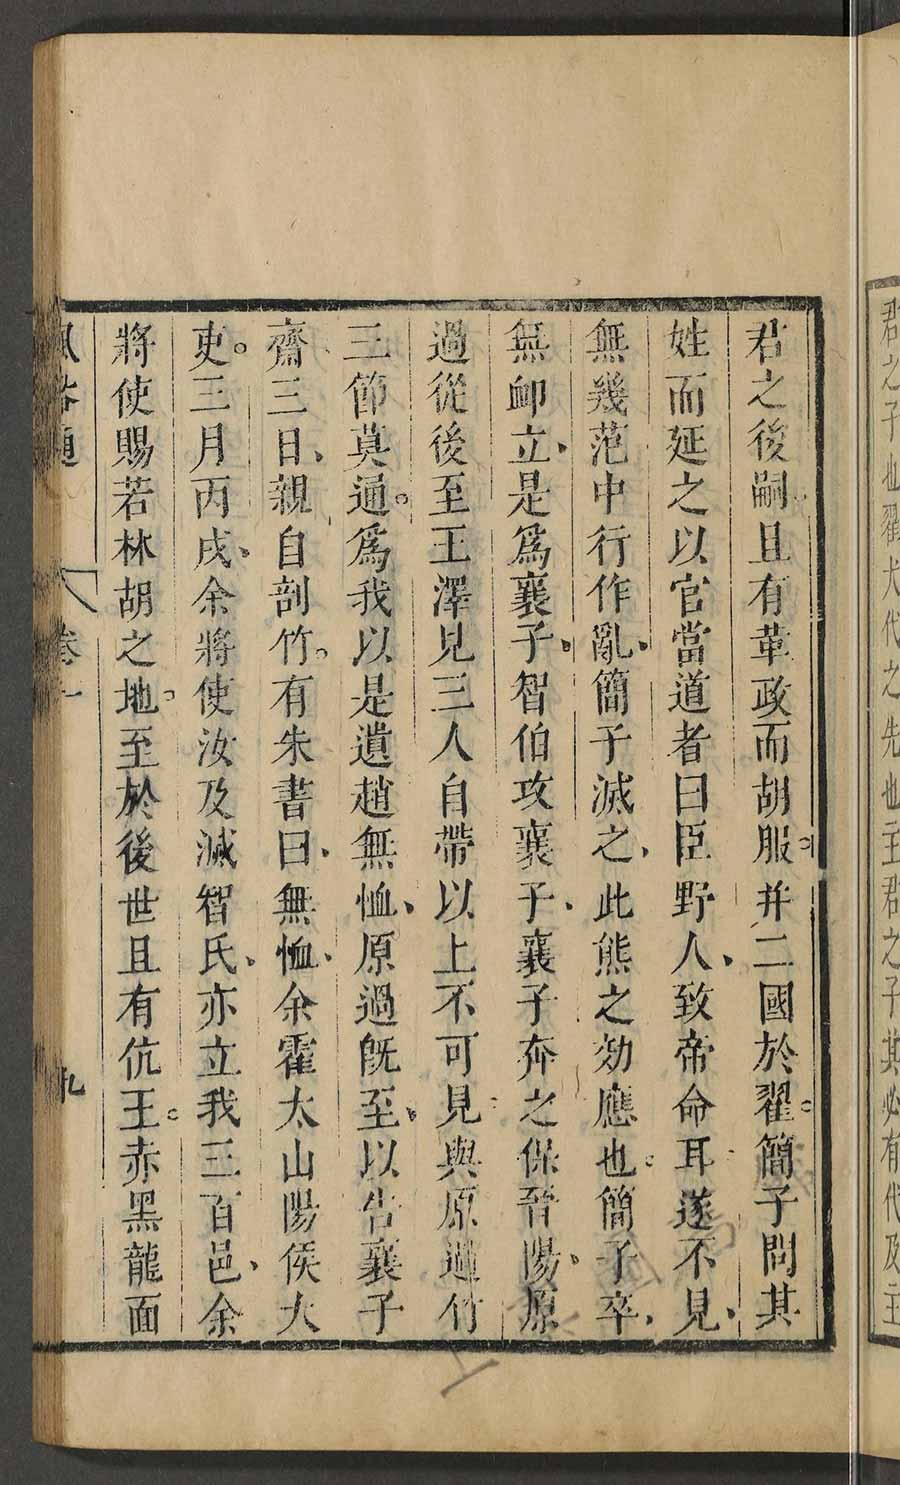 君之子也翟犬代之先也主君之子其必有代及主
君之後嗣且有革政而胡服并二國於翟簡子問其
姓而延之以官當道者曰臣野人致帝命耳遂不見
無幾范中行作亂簡子滅之此熊之効應也簡子卒
無卹立是爲襄子智伯攻襄子襄子奔之保晉陽原
過從後至王澤見三人自帶以上不可見與原過竹
三節莫通爲我以是遺趙無恤原過旣至以告襄子
齋三日親自剖竹有朱書曰無恤余霍太山陽侯大
吏三月丙戌余將使汝及滅智氏亦立我三百邑余
將使賜若林胡之地至於後世且有伉王赤黑龍面
風俗通 卷一 九